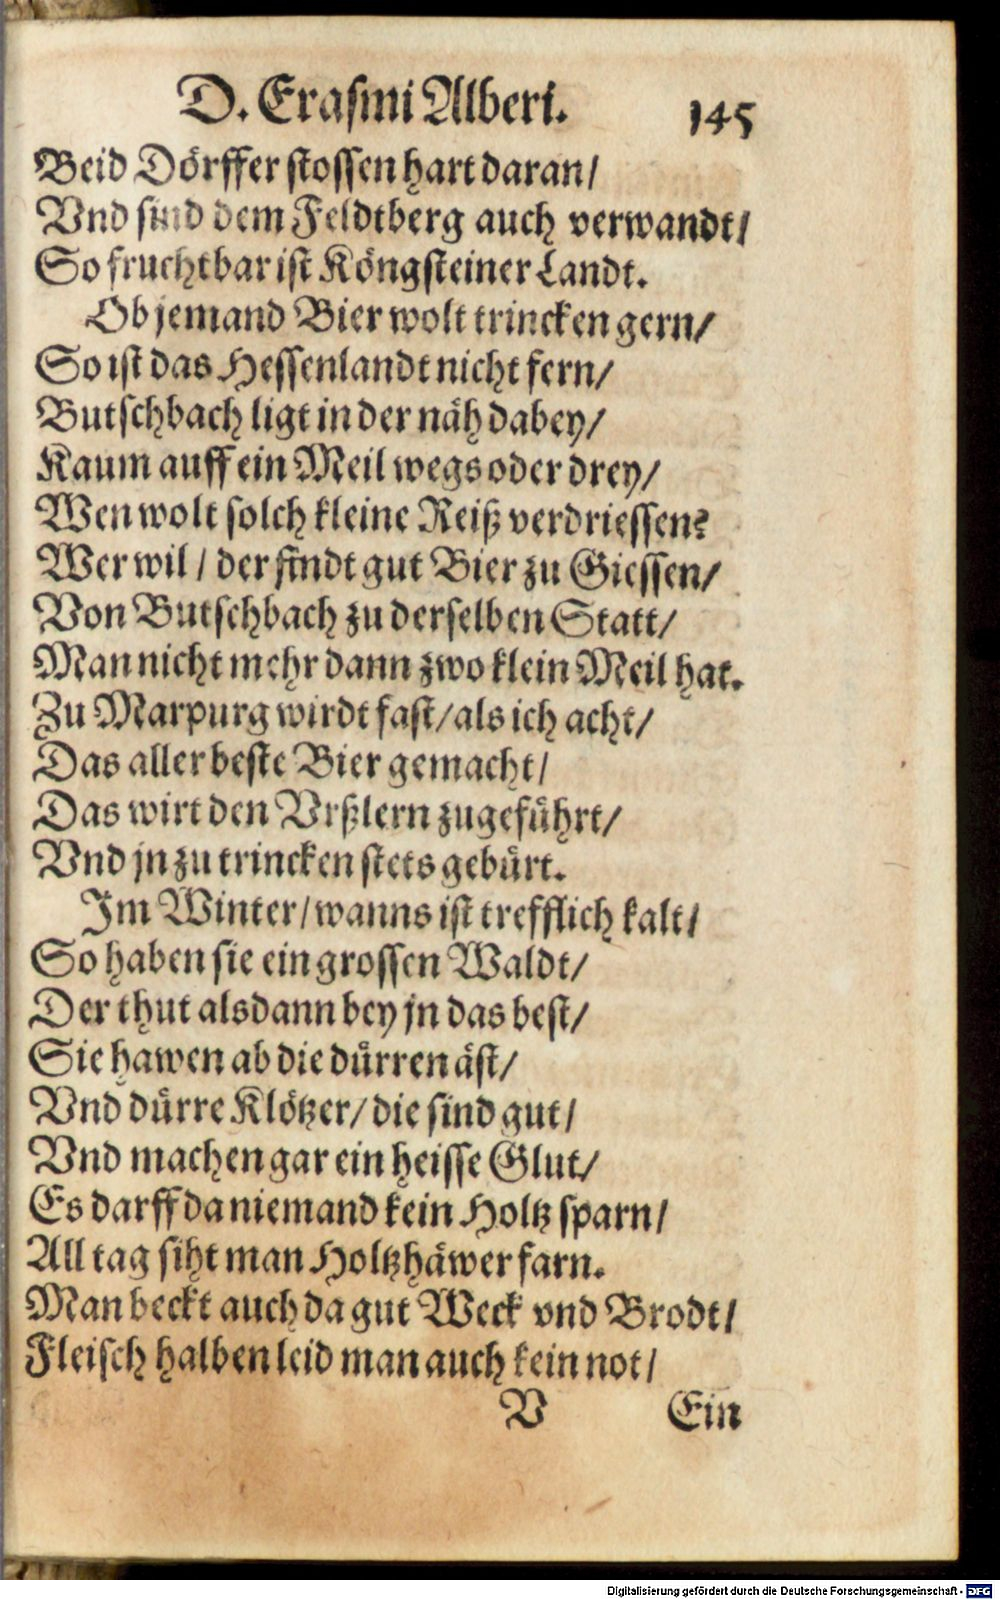 D. Erasmi Alberi. 145
Beid Dörffer stossen hart daran/
Vnd sind dem Feldtberg auch verwandt/
So fruchtbar ist Köngsteiner Landt.
Ob jemand Bier wolt trincken gern/
So ist das Hessenlandt nicht fern/
Butschbach ligt in der näh dabey/
Kaum auff ein Meil wegs oder drey/
Wen wolt solch kleine Reiß verdriessen?
Wer wil / der findt gut Bier zu Giessen/
Von Butschbach zu derselben Statt/
Man nicht mehr dann zwo klein Meil hat.
Zu Marpurg wirdt fast/ als ich acht/
Das aller beste Bier gemacht/
Das wirt den Vrßlern zugeführt/
Vnd jn zu trincken stets gebürt.
Im Winter/ wanns ist trefflich kalt/
So haben sie ein grossen Waldt/
Der thut alsdann bey jn das best/
Sie hawen ab die dürren äst/
Vnd dürre Klötzer/ die sind gut/
Vnd machen gar ein heisse Glut/
Es darff da niemand kein Holtz sparn/
All tag siht man Holtzhäwer farn.
Man beckt auch da gut Weck vnd Brodt/
Fleisch halben leid man auch kein not/
V Ein
Digitalisierung gefördert durch die Deutsche Forschungsgemeinschaft - DFG